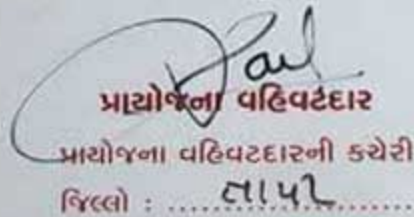 પ્રાયોજના વહિવટદાર
પ્રાયોજના વહિવટદારની કચેરી
જિલ્લો : ..... તાપી .......